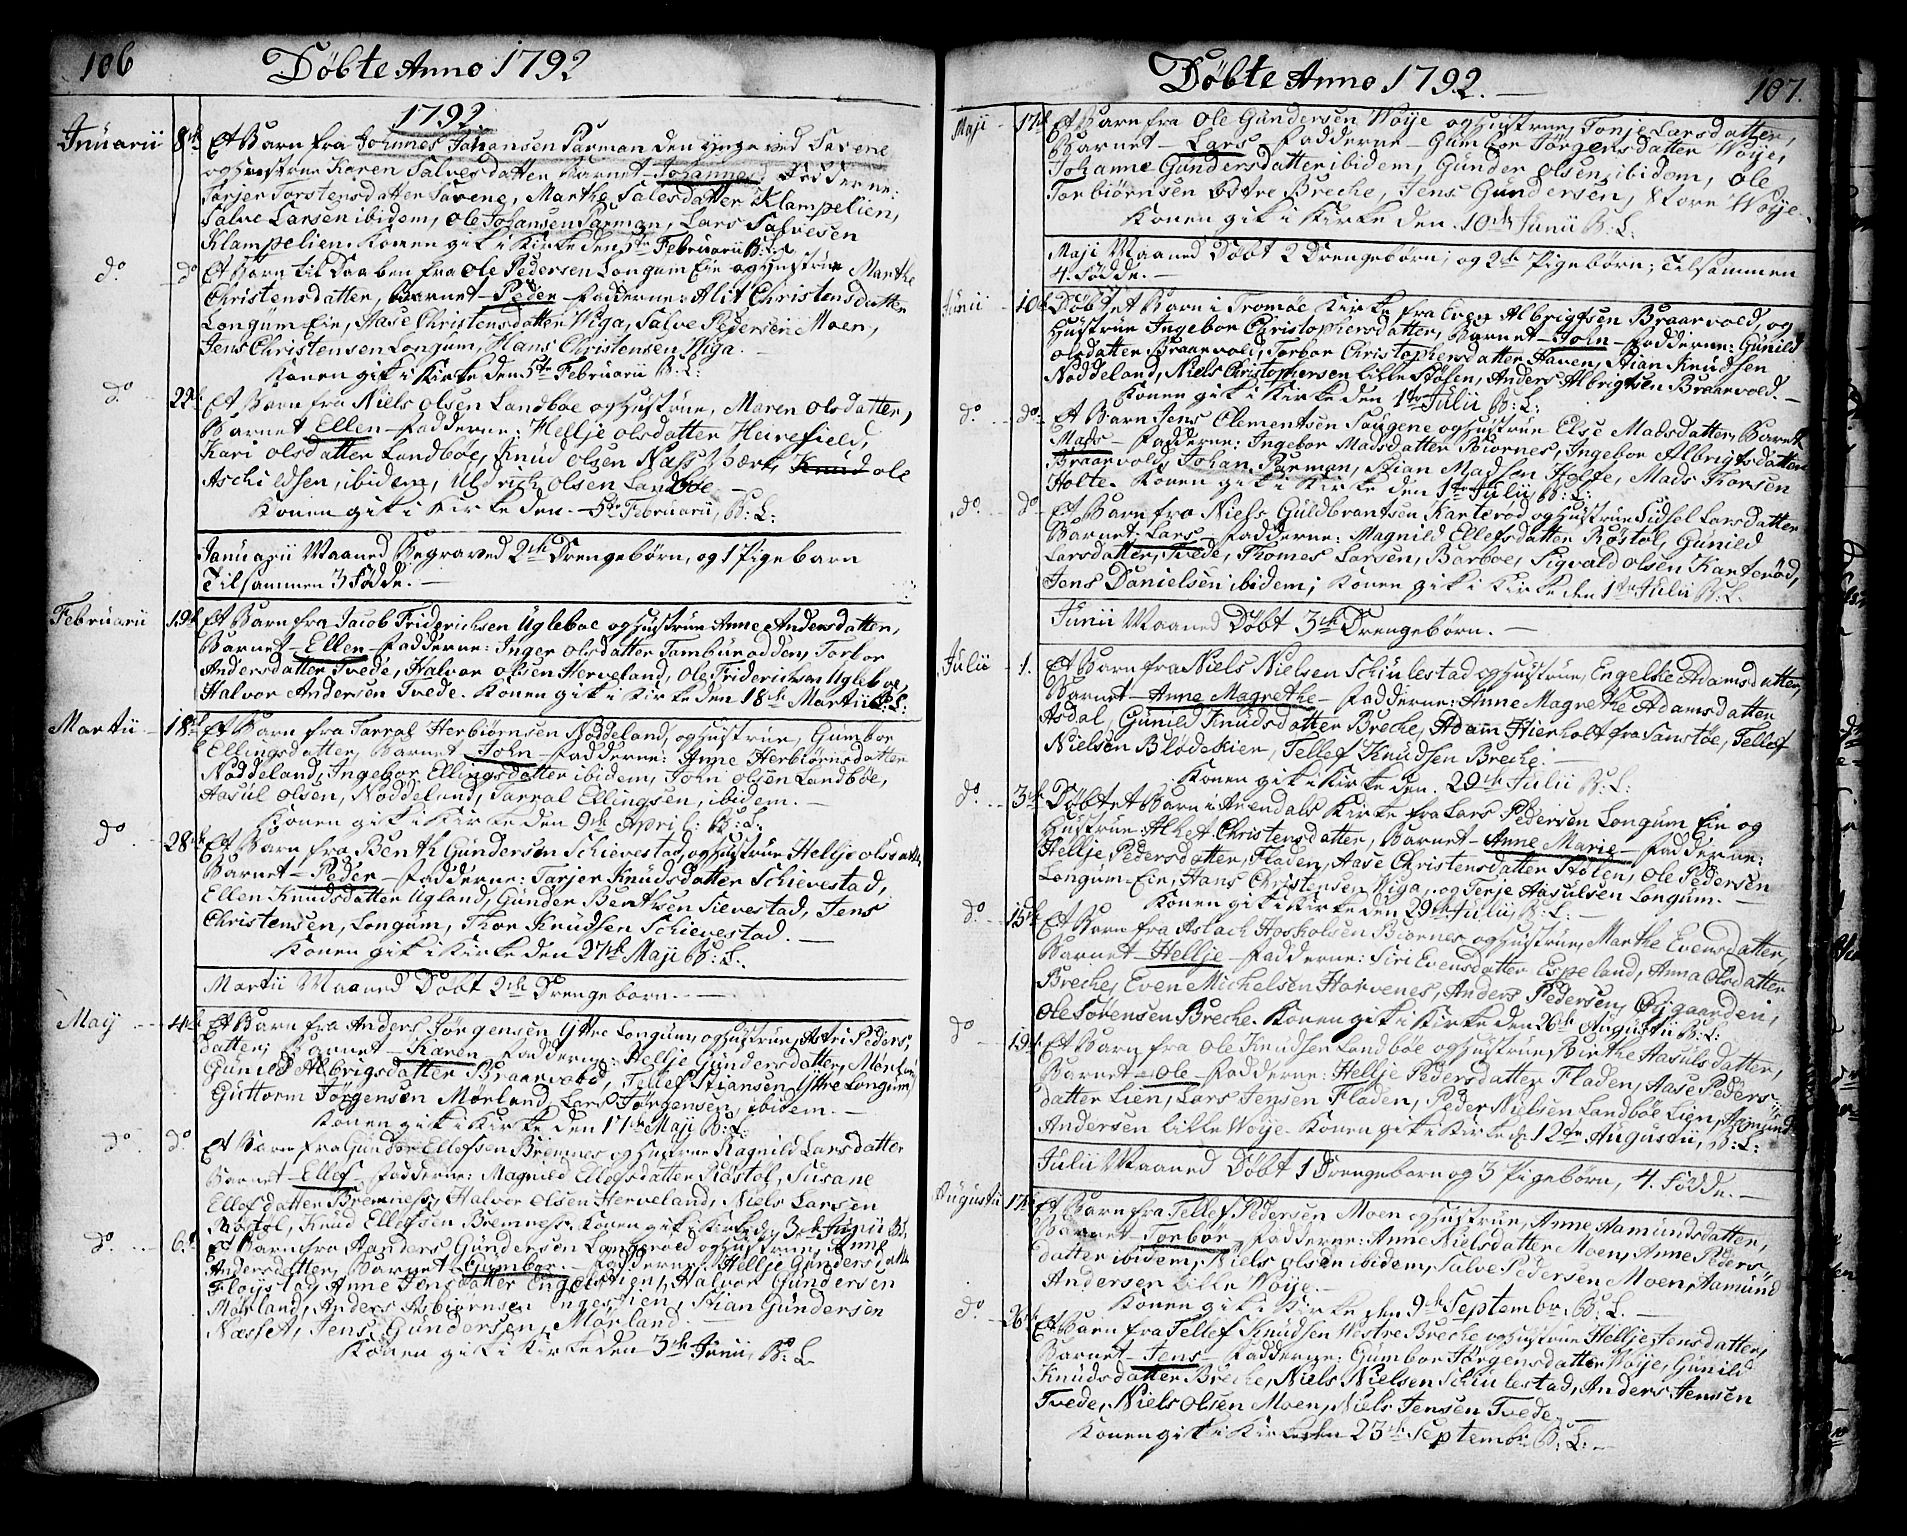 106
Döbte Anno 1792
1792
Januarii 8de Et Barn fra Johannes Johansen Parman den ynge ved Savene
og Hustrue Karen Salvesdatter Barnet - Johannes Fadderne:
Tarjer Torstensdatter Savene, Marthe Salesdatter Klampelien,
Salve Larsen ibidem, Ole Johansen Parman, Lars Salvesen
Klampelien. Konen gik i Kirke den 5te Februarii B: L:
do. do Et Barn til Daaben fra Ole Pedersen Longum Eie og Hustrue Marthe
Christensdatter, Barnet - Peder - Fadderne: Alit Christensdatter
Longum Eie, Aase Christensdatter Wiga, Salve Pedersen Moen,
Jens Christensen Longum, Hans Christensen Wiga. -
Konen gik i Kirke den 5te Februarii B: L:
do. 22de Et Barn fra Niels Olsen Landböe og Hustrue, Maren Olsdatter,
Barnet Ellen - Fadderne: Hellje Olsdatter Heirefield,
Kari Olsdatter Landböe, Knud Olsen Næss Værk, Knud Ole
Aschildsen, ibidem, Uldrich Olsen Landböe -
Konen gik i Kirke den 5te Februarii, B: L:
Januarii Maaned Begraved 2de Drengebörn, og 1 Pigebarn
Tilsammen 3 Födde. -
Februarii 19de Et Barn fra Jacob Friderichsen Ugleboe og Hustrue Anne Andersdatter,
Barnet - Ellen - Fadderne: Inger Olsdatter Tamburodden, Torbor
Andersdatter Tvede, Halvor Olsen Herveland, Ole Friderichsen Ugleboe,
Halvor Andersen Tvede. Konen gik i Kirke den 18de Martii B: L:
Martii 18de Et Barn fra Tarral Herbiörnsen Nöddeland, og Hustrue, Gumbor
Ellingsdatter, Barnet John - Fadderne: Anne Herbiörnsdatter
Nöddeland, Ingebor Ellingsdatter ibidem, John Olsen Landböe,
Aasul Olsen, Nöddeland, Tarral Ellingsen, ibidem. -
Konen gik i Kirke den 9de April: B: L:
do 28de Et Barn fra Benth Gundersen Schievestad, og Hustrue Hellje Olsdatter
Barnet - Peder - Fadderne: Tarjer Knudsdatter Schievestad,
Ellen Knudsdatter Ugland, Gunder Bentsen Sievestad, Jens
Christensen, Longum, Thor Knudsen Schievestad. -
Konen gik i Kirke den 27de Maji B: L:
Martii Maaned Döbt 2de Drengebarn. -
May 4de Et Barn fra Anders Jörgensen Yttre Longum, og Hustrue, Astri Peders-
datter; Barnet - Karen - Fadderne: Hellje Gundersdatter, Mörland,
Gunild Albrigsdatter Braarvold, Tellef Stiansen Yttre Longum,
Guttorm Jörgensen Mörland, Lars Jörgensen, ibidem. -
Konen gik i Kirke den 17de Maji B: L:
do. do. Et Barn fra Gunder Ellefsen Bremnes og Hustrue Ragnild Larsdatter
Barnet - Ellef - Fadderne: Magnild Ellefsdatter Röstöl, Susane
Ellefsdatter Bremness, Halvor Olsen Herveland, Niels Larsen
Röstöl, Knud Ellefsen Bremness. Konen gik i Kirke d. 3de Junii B: L:
do. 6te Et Barn fra Aanders Gundersen Longeroed og Hustrue,
Andersdatter, Barnet Gumbor. - Fadderne: Hellje Gundersdatter
Flöystad, Anne Jensdatter Engestien, Halvor Gundersen
Mörland, Anders Asbiörnsen Engestien, Stian Gundersen
Næsset, Jens Gundersen, Mörland. -
Konen gik i Kirke den 3de Junii, B: L:
Döbte Anno 1792. -
107.
Maji 17de Et Barn fra Ole Gundersen Wöije og Hustrue, Tonje Larsdatter,
Barnet - Lars - Fadderne - Gumbor Jörgensdatter Wöije,
Johanne Gundersdatter ibidem, Gunder Olsen, ibidem, Ole
Torbiörnsen Östre Breche, Jens Gundersen, Store Wöije.
Konen gik i Kirke den 10de Junii B: L:
Maji Maaned Döbt 2 Drengebörn, og 2de Pigebörn; Tilsammen
4. Födde. -
Junii 10de Döbt et Barn i Tromöe Kirke fra Even Albrigtsen Braarvold, og
Hustrue Ingebor Christophersdatter, Barnet - John - Fadderne: Gunild
Olsdatter Braarvold, Torbor Christophersdatter Haven, Stian Knudsen
Nöddeland, Niels Christophersen Lille Stölen, Anders Albrigtsen Braarvold. -
Konen gik i Kirke den 1te Julii B: L:
do. do. Et Barn Jens Clementsen Saugene og Hustrue Else Madsdatter, Barnet
Mads - Fadderne: Ingebor Madsdatter Biornes, Ingebor Albrigtsdatter
Braarvold, Johan Parman, Stian Madsen Holte, Mads Thorsen
Holte. Konen gik i Kirke den 1te Julii, B: L:
do. do Et Barn fra Niels Guldbrantsen Karteröd og Hustrue Sidsel Larsdatter
Barnet - Lars - Fadderne: Magnild Ellefsdatter Röstöl, Gunild
Larsdatter, Tvede, Thomes Larsen, Barboe, Sigvald Olsen Karteröd,
Jens Danielsen ibidem; Konen gik i Kirke den 1te Julii B: L:
Junii Maaned Döbt 3de Drengebörn. -
Julii 1. Et Barn fra Niels Nielsen Schiulestad og Hustrue, Engelke Adamsdatter,
Barnet - Anne Magrethe - Fadderne: Anne Magrethe Adamsdatter
Asdal, Gunild Knudsdatter Breche, Adam Hierholt fra Sanstöe, Tellef
Nielsen Blödekier, Tellef Knudsen Breche. -
Konen gik i Kirke den. 29de Julii B: L:
do. 3de Döbt et Barn i Arendals Kirke fra Lars Pedersen Longum Eie og
Hustrue Alhet Christensdatter, Barnet - Anne Marie - Fadderne:
Hellje Pedersdatter, Fladen, Aase Christensdatter Stölen, Ole Pedersen
Longum-Eie, Hans Christensen Wiga, og Terje Aasulsen Longum. -
Konen gik i Kirke den 29de Julii, B: L: -
do. 15de Et Barn fra Aslach Hoskolsen Biornes og Hustrue, Marthe Evensdatter,
Barnet - Hellje - Fadderne: Siri Evensdatter Espeland, Anna Olsdatter
Breche, Even Michelsen Harvenes, Anders Pedersen, Öygaarden,
Ole Sörensen Breche. Konen gik i Kirke den 26de Augustii B: L:
do 19de Et Barn fra Ole Knudsen Landböe og Hustrue, Birthe Aasulsdatter,
Barnet - Ole - Fadderne: Hellje Pedersdatter Fladen, Aase Peders-
datter Lien, Lars Jensen Fladen, Peder Nielsen Landböe Lien, Aamund
Andersen Lille Wöije - Konen gik i Kirke d. 12te Augustii, B: L:
Julii Maaned Döbt 1 Drengebarn og 3 Pigebörn, 4. Födde. -
Augustii 17de Et Barn fra Tellef Pedersen Moen og Hustrue, Anne Aamundsdatter,
Barnet - Torbör - Fadderne: Anne Nielsdatter Moen, Anne Peders-
datter ibidem, Niels Olsen ibidem, Salve Pedersen Moen, Aamund
Andersen Lille Wöije. -
Konen gik i Kirke den 9de Septembr, B: L. -
do. 26de Et Barn fra Tellef Knudsen Westre Breche og Hustrue Hellje Jensdatter,
Barnet - Jens - Fadderne: Gumbor Jörgensdatter Wöije, Gunild
Knudsdatter Breche, Niels Nielsen Schiulestad, Anders Jensen
Tvede, Niels Olsen Moen, Niels Jensen Tvede. -
Konen gik i Kirke den 23de Septembr B: L: -